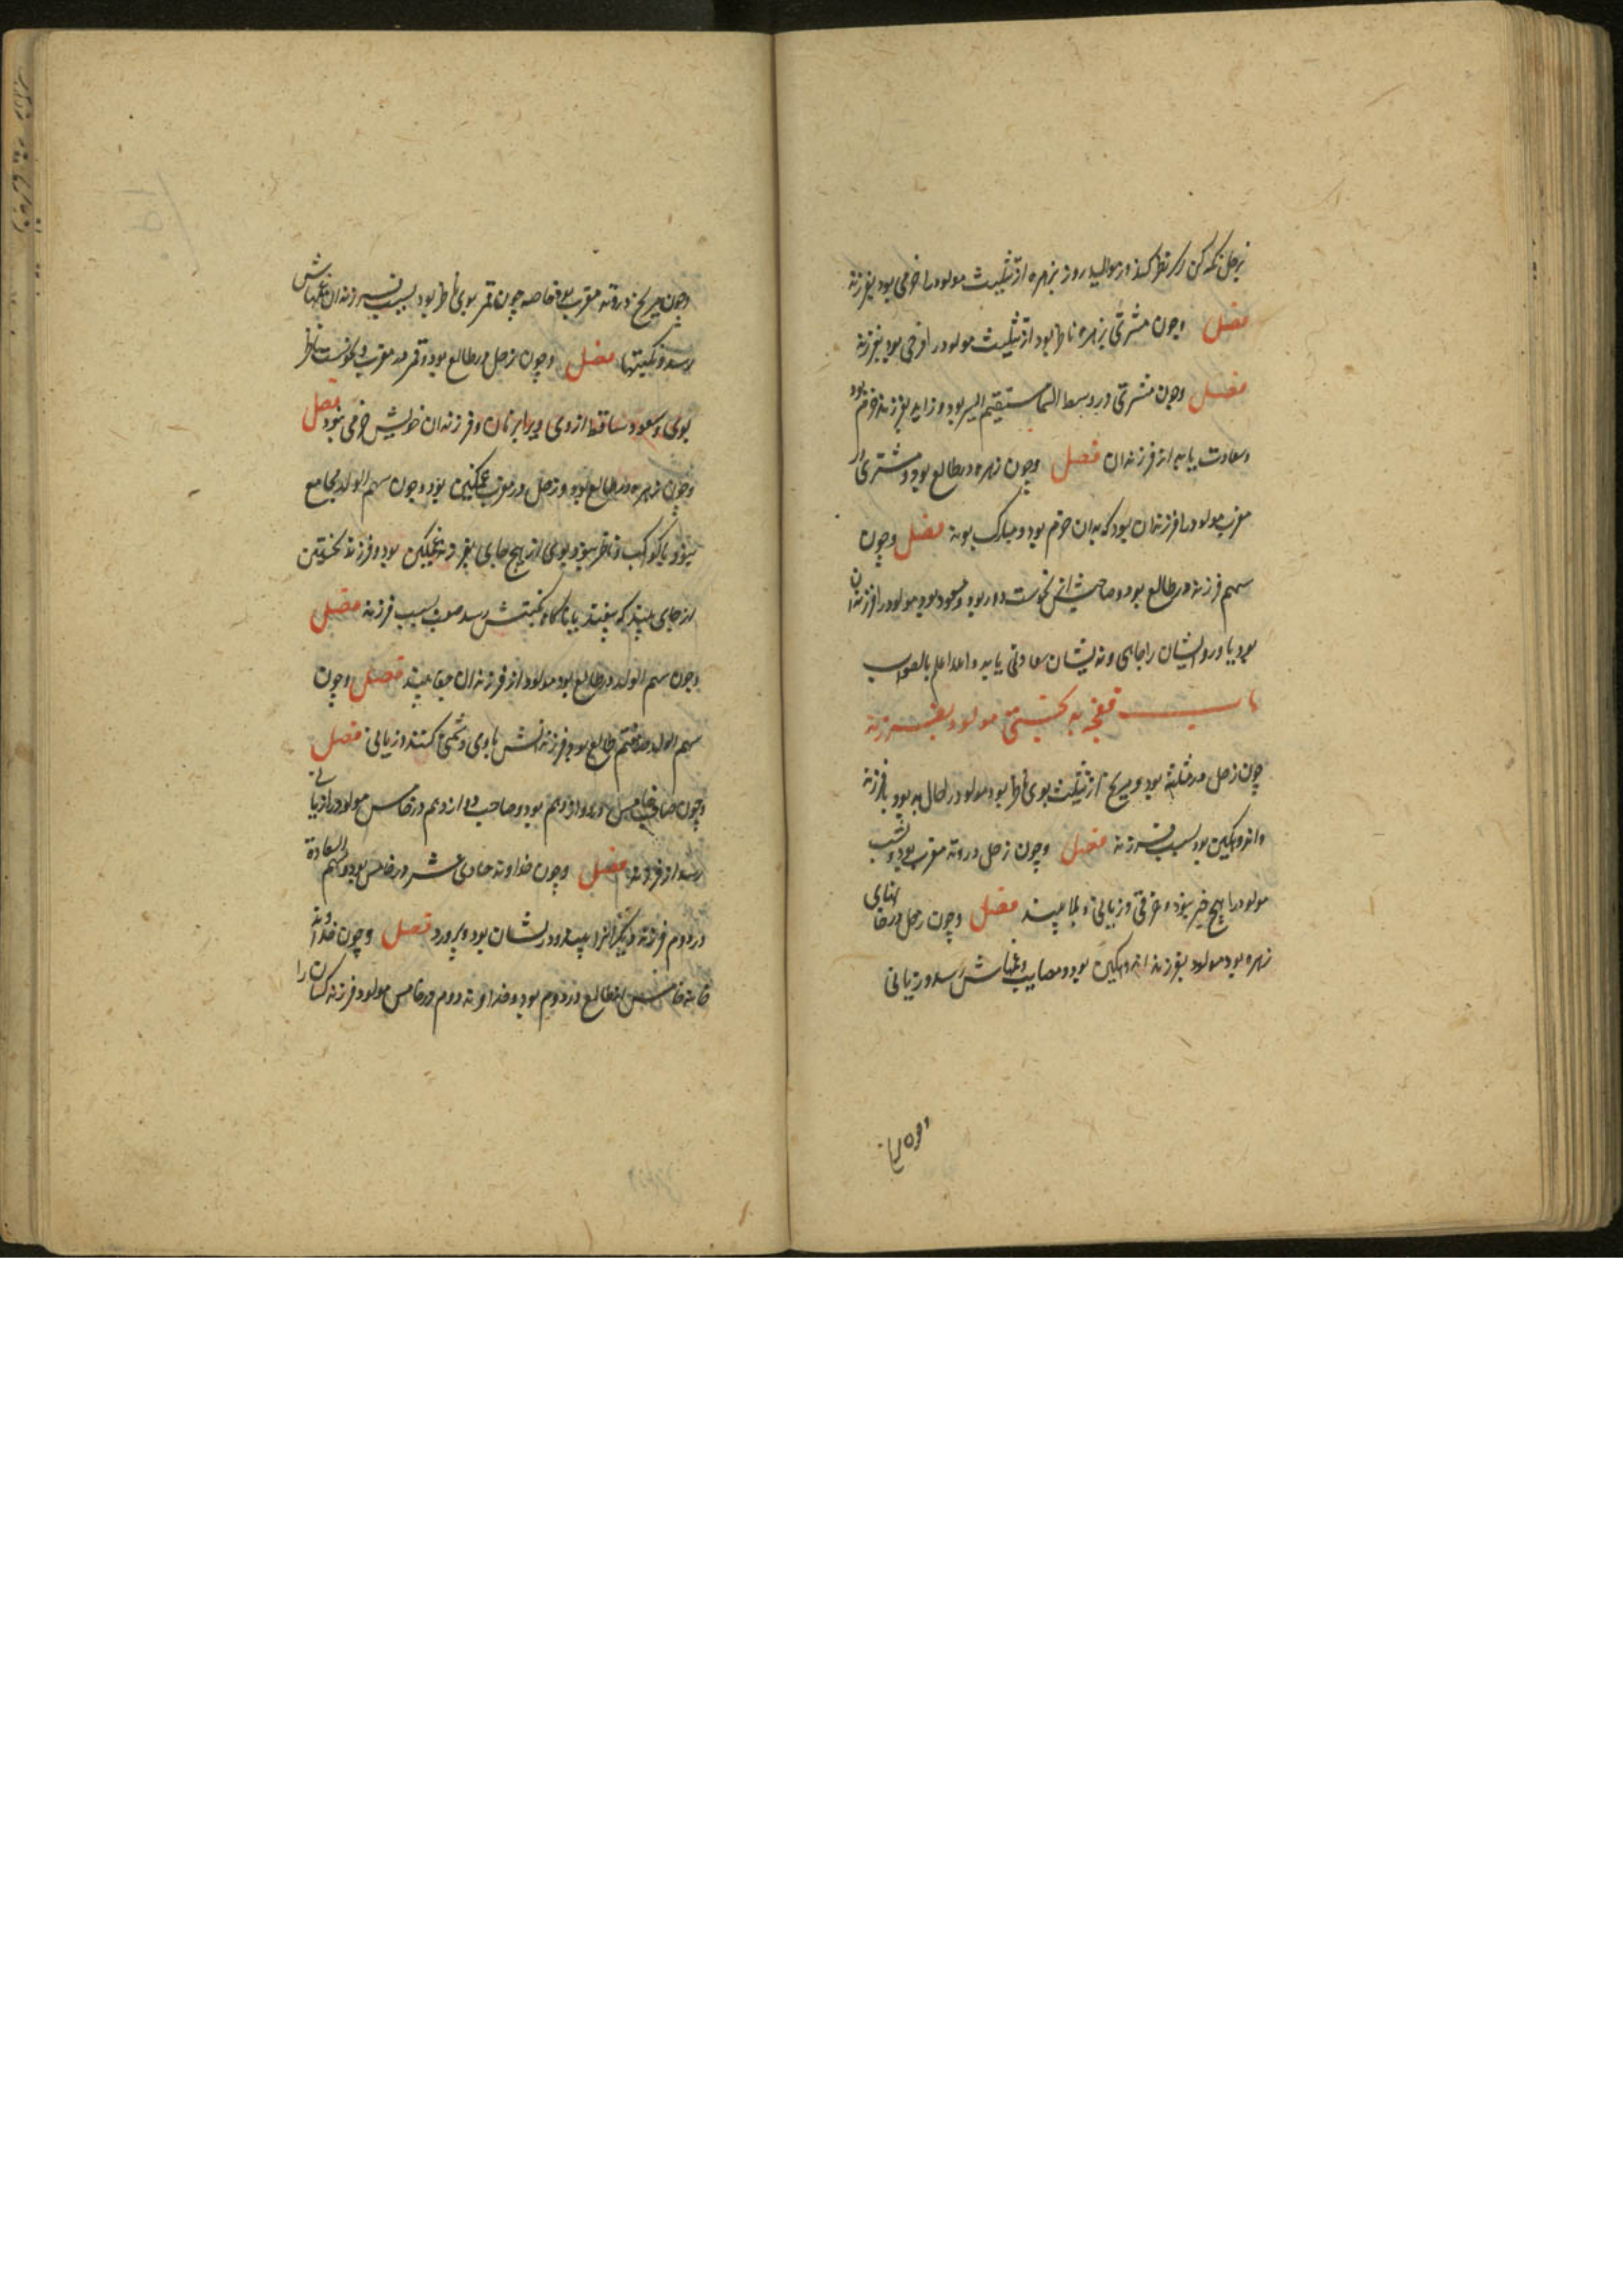 بزحل نکه کن اگر نظر کند در موالید روز بزهره از تثلیث مولود را خرمی بود بفرزند
فصل وچون مشتری بزهره ناظر بود از تثلیث مولود را خرمی بود بفرزند
فصل وچون مشتری در وسط السما مستقیم السیر بود و زاید بفرزند خرم بود
وسعادت یابد از فرزندان فصل وچون زهره در طالع بود و مشتری در
مغرب مولود را فرزندان بود که بدان خرم بود و مبارک بوند فصل وچون
سهم فرزند در طالع بود و صاحبش از نحوست دور بود و مسعود بود مولود را فرزندان
بود یا و روایشان را جاهی وند یشان سعادتی یابد والله اعلم بالصواب
باب بد بختی مولود بفرزند
چون زحل در مثلثه بود و مریخ از تثلیث بوی ناظر بود مولود را حال بد بود بافرزند
واندوهکین بود بسبب فرزند فصل وچون زحل در وتد مغرب بود و بشب
مولود را هیچ خیر نبود و غرقی و زیانی و بلا بیند فصل وچون زحل در خانهای
زهره بود مولود بفرزند اندوهکین بود و مصایب وغمهاش رسد و زیانی
وچون مریخ در وتد مغرب بود خاصه چون قمر بوی ناظر بود بسبب فرزندان غمهاش
رسد و نکبتها فصل وچون زحل در طالع بود و قمر در مغرب و نحوست ناظر
بوی وسعود ساقط از وی ویرا بزنان و فرزندان خویش خرمی نبود فصل
وچون زهره در طالع بود و زحل در مغرب غمکین بود وچون سهم الولد مجامع
نبود با کواکب و ناظر نبود بوی از هیچ جای بفرزند غمکین بود و فرزند نخستین
از جای بلند که بیفتد یا ناکاه نکبتش رسد صعب بسبب فرزند فصل
وچون سهم الولد در طالع بود مولود از فرزندان جفا بیند فصل وچون
سهم الولد در هفتم طالع بود فرزندانش با وی دشمنی کنند و زیانی فصل
وچون صاحب خامس در دوازدهم بود وصاحب دوازدهم در خامس مولود را زیانی
رسد از فرزند فصل وچون خداوند حادی عشر در خامس بود وسهم السعادة
در دوم فرزند دیکرانرا بپذیرد و ریشان بود وبپرورد فصل وچون خداوند
خانه خامس از طالع در دوم بود وخداوند دوم در خامس مولود فرزند کسان را